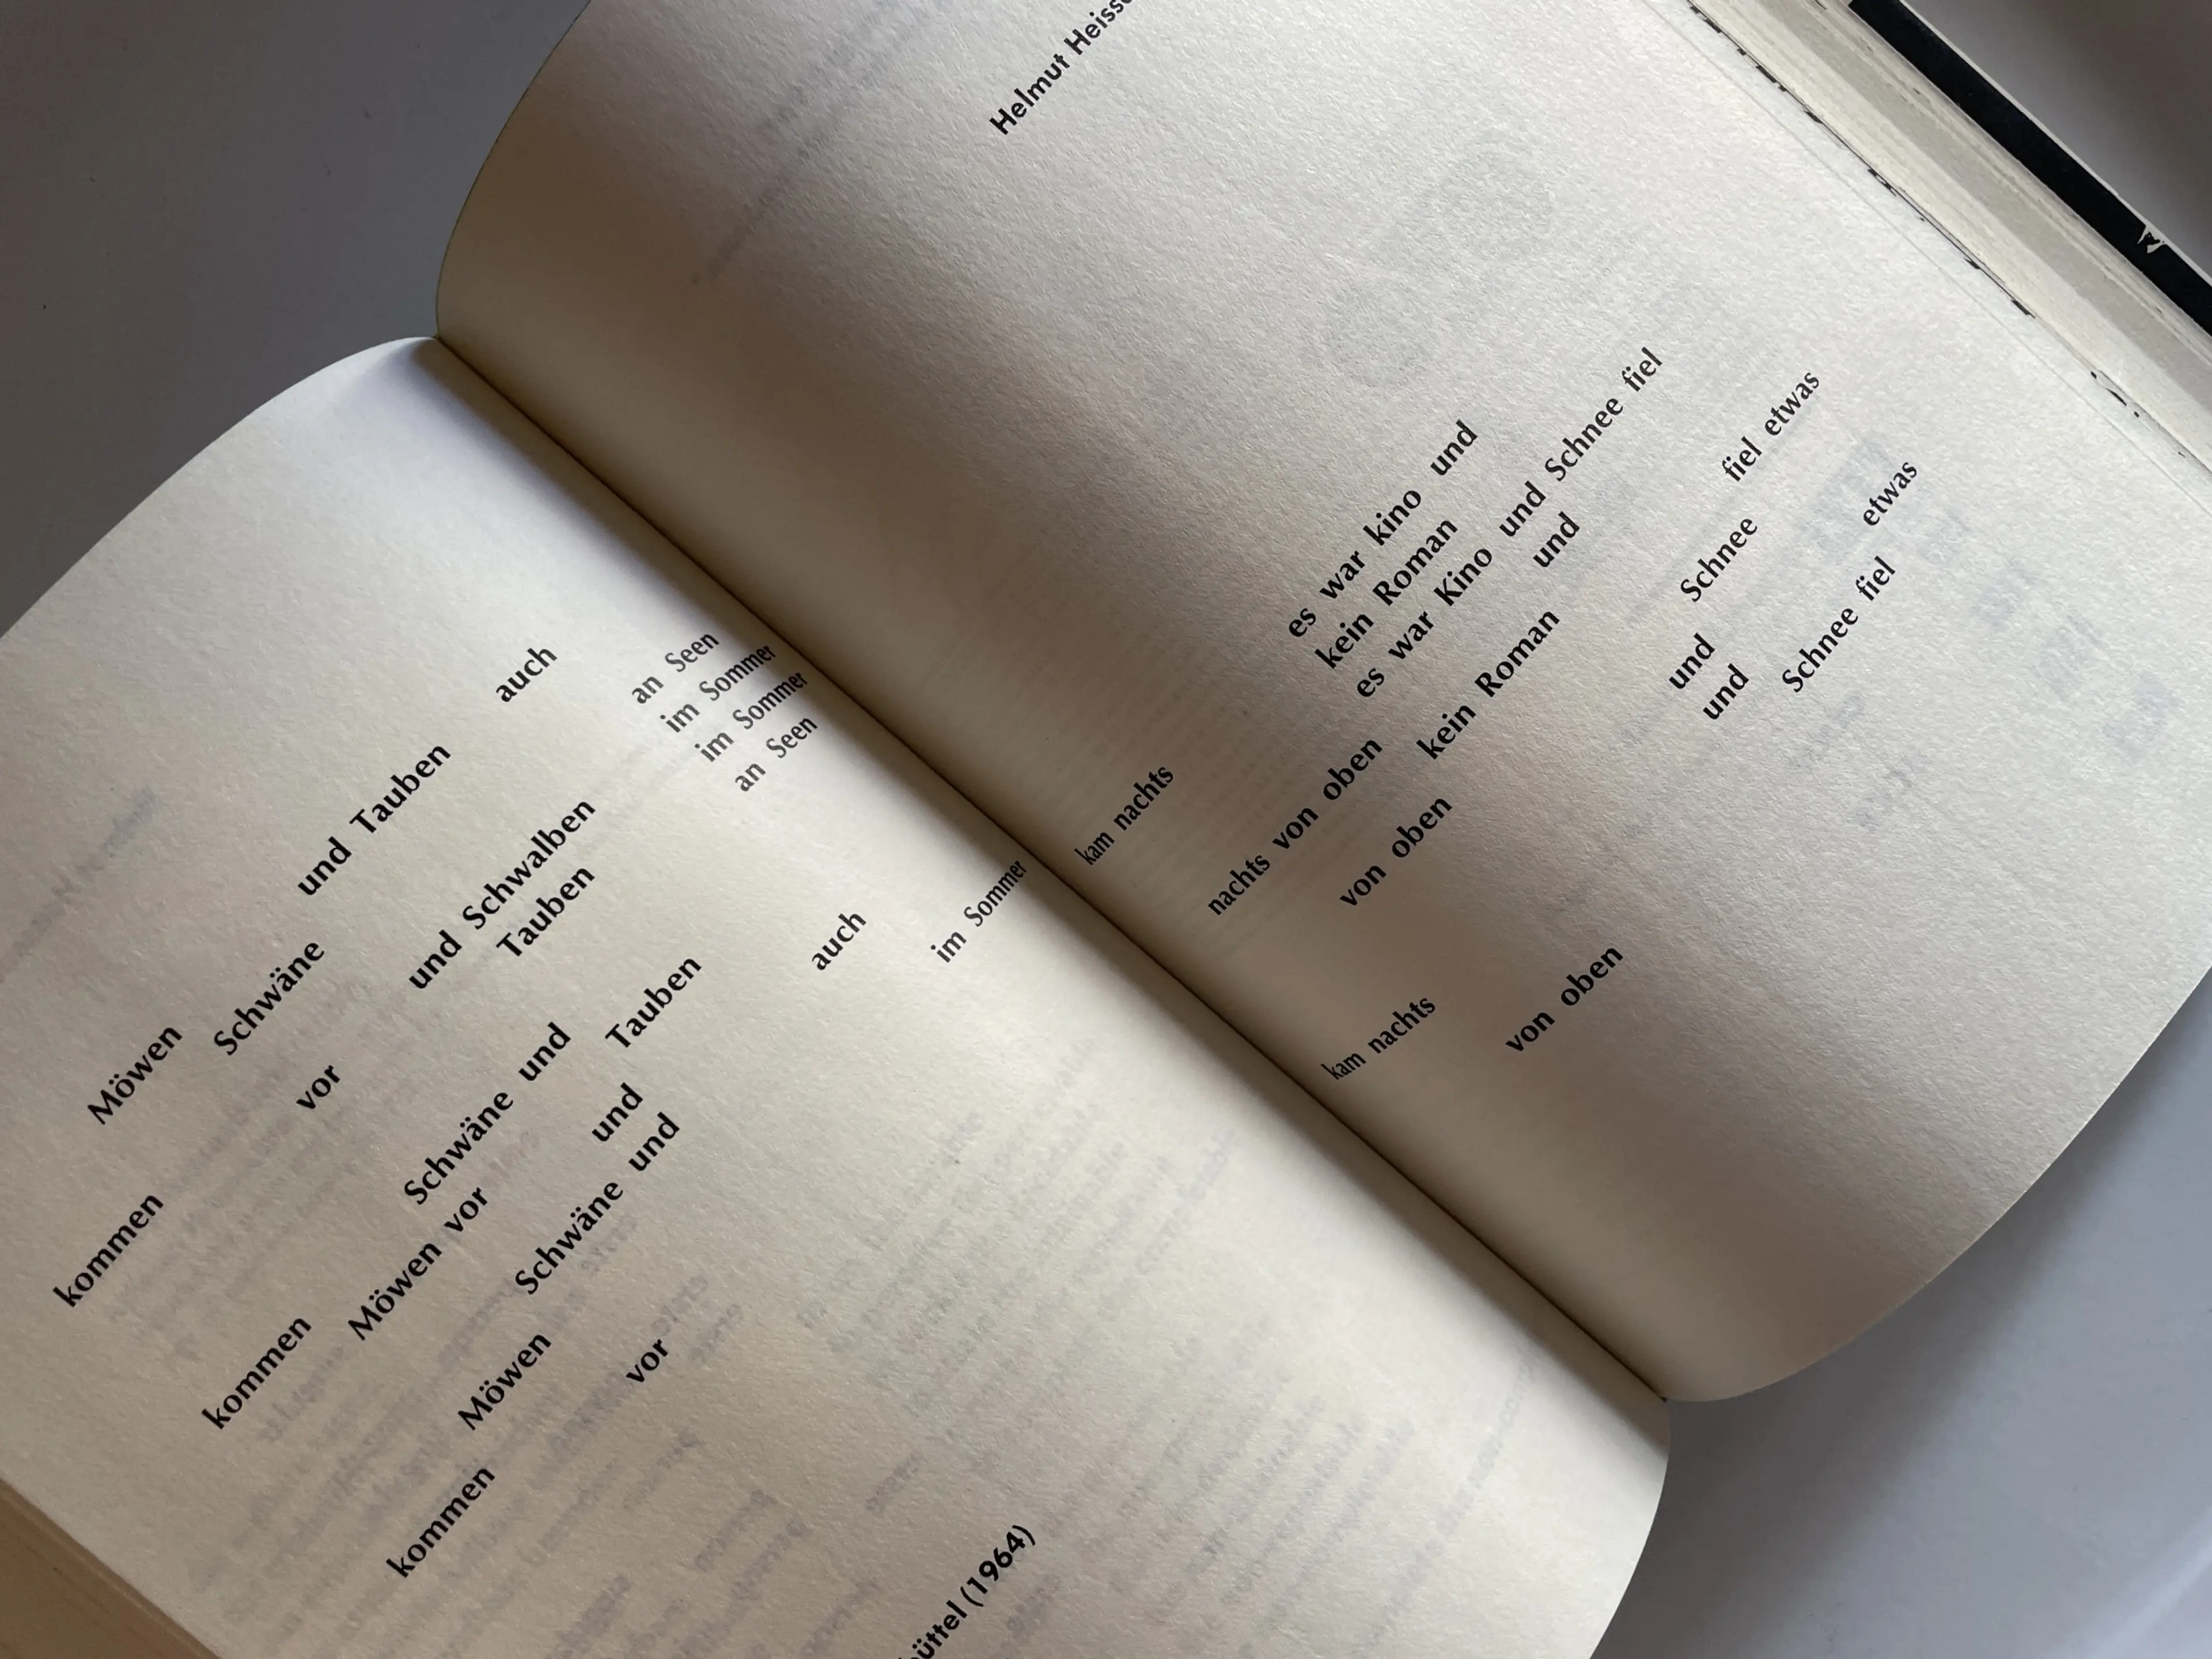 Möwen und Tauben auch
Schwäne an Seen
kommen im Sommer
vor und Schwalben im Sommer
Tauben an Seen
kommen Schwäne und
Möwen vor Tauben
und auch
Schwäne und
Möwen im Sommer
kommen
vor
büttel (1964)
Helmut Heiss
kam nachts es war kino und
kein Roman
es war Kino und Schnee fiel
nachts von oben und
kein Roman fiel etwas
von oben Schnee
und etwas
kam nachts und
Schnee fiel
von oben